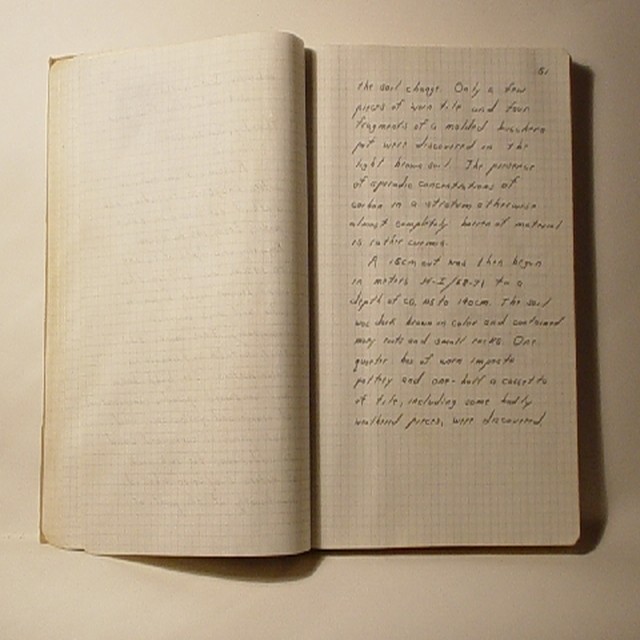 51
the soil change. Only a few
pieces of worn tile and four
fragments of a molded bucchero
pot were discovered in the
light brown soil. The presence
of sporadic concentrations of
carbon in a stratum otherwise
almost completely barren of material
is rather curious.
A 15cm cut was then begun
in meters to a
depth of ca. 115 to 140cm. The soil
was dark brown in color and contained
many roots and small rocks. One
quarter box of worn impasto
pottery and one-half a cassetta
of tile, including some badly
weathered pieces, were discovered,